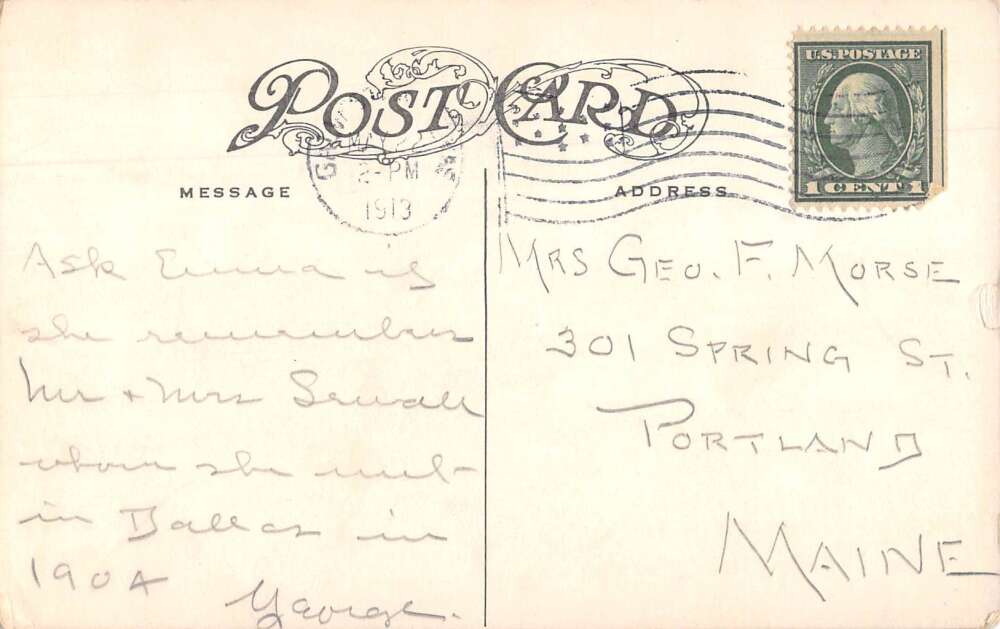 POST CARD
U.S. POSTAGE
1 CENT 1
PM
1913
MESSAGE
ADDRESS
Ask Emma if
she remembers
Mr + Mrs Sewall
whom she met
in Dallas in
1904
George.
MRS GEO. F. MORSE
301 SPRING ST.
PORTLAND
MAINE